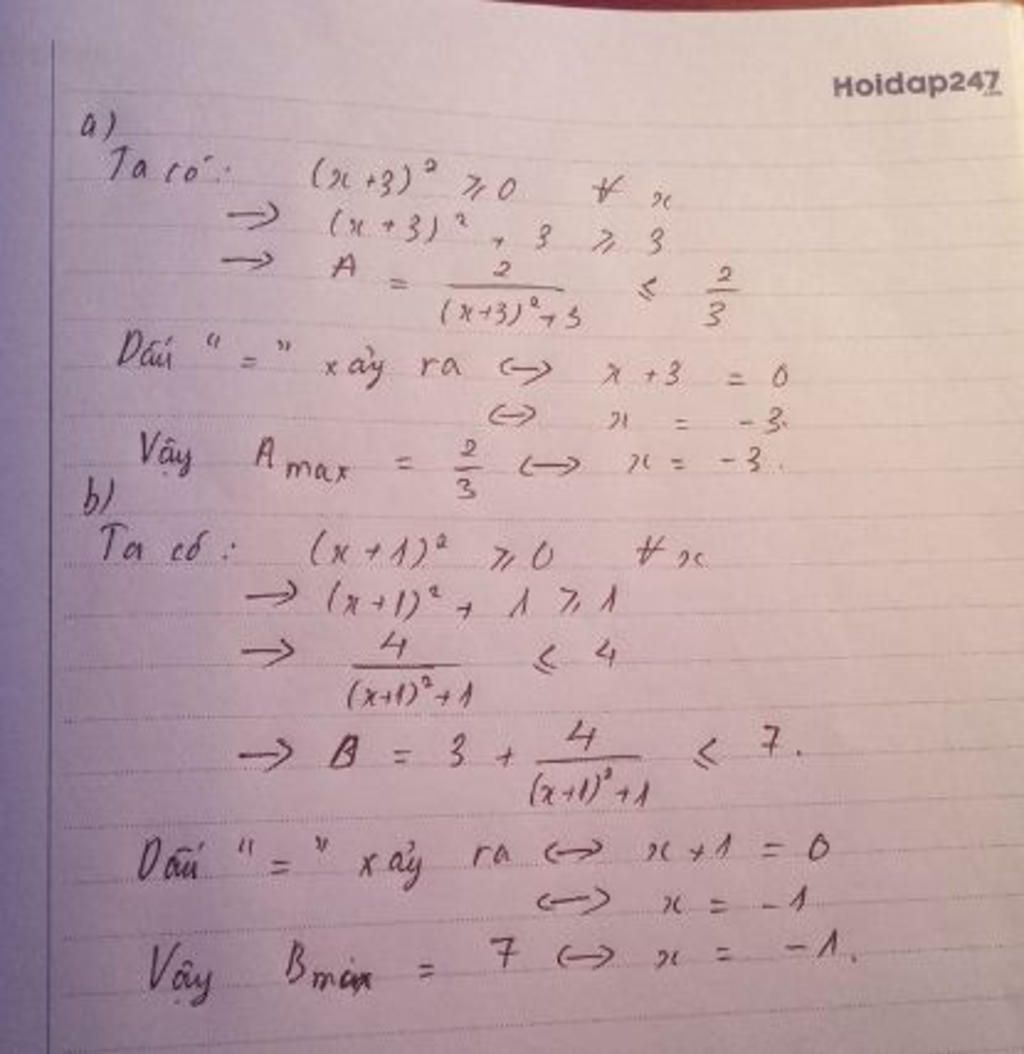 Hoidap247
.com
a)
Ta có: (x+3)² ≥ 0 ∀ x
→ (x+3)² + 3 ≥ 3
→ A = 2/((x+3)²+3) ≤ 2/3
Dấu "=" xảy ra ↔ x+3 = 0
↔ x = -3.
Vậy A max = 2/3 ↔ x = -3.
b)
Ta có: (x+1)² ≥ 0 ∀ x
→ (x+1)² + 1 ≥ 1
→ 4/((x+1)²+1) ≤ 4
→ B = 3 + 4/((x+1)²+1) ≤ 7.
Dấu "=" xảy ra ↔ x+1 = 0
↔ x = -1
Vậy B max = 7 ↔ x = -1.